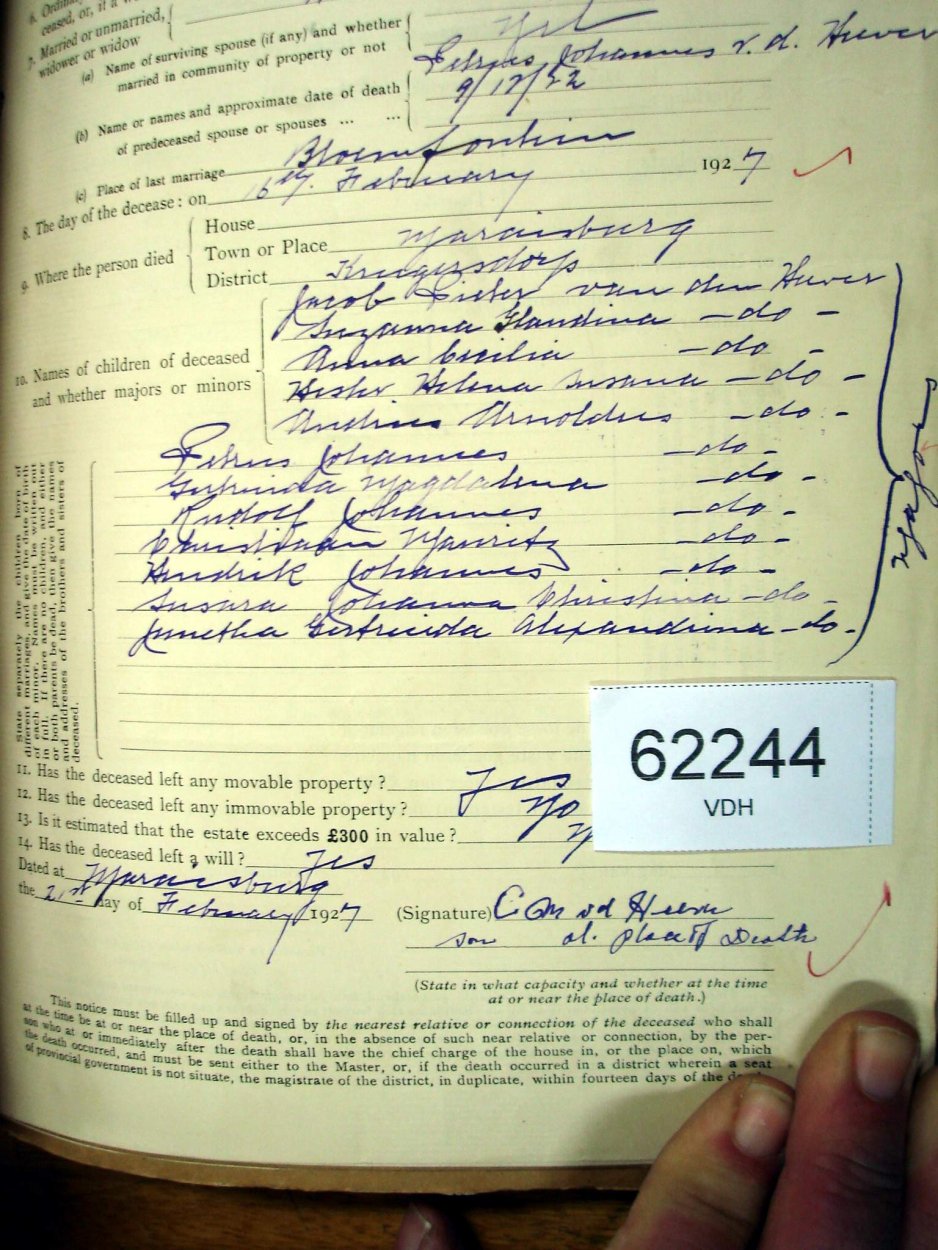 ceased, or, if a
7. Married or unmarried,
widower or widow
(a) Name of surviving spouse (if any) and whether
married in community of property or not
Petrus Johannes v. d. Hever
(b) Name or names and approximate date of death
of predeceased spouse or spouses ... ...
9/12/22
(c) Place of last marriage Bloemfontein
8. The day of the decease: on 16th. February 1927
9. Where the person died
House
Town or Place Maraisburg
District Krugersdorp
10. Names of children of deceased
and whether majors or minors
Jacob Pieter van den Hever
Suzanna Glaudina -do-
Anna Cecilia -do-
Hester Helena Susana -do-
Andries Arnoldus -do-
Petrus Johannes -do-
Gertruida Magdalena -do-
Rudolf Johannes -do-
Christiaan Mauritz -do-
Hendrik Johannes -do-
Susara Johanna Christina -do-
Gertruida Alexandrina -do-
Majors
State separately the children born of
different marriages, and give the date of birth
of each minor. Names must be written out
in full. If there are no children, and either
or both parents be dead, then give the names
and addresses of the brothers and sisters of
deceased.
11. Has the deceased left any movable property? Yes
12. Has the deceased left any immovable property? No
13. Is it estimated that the estate exceeds £300 in value?
14. Has the deceased left a will? Yes
62244
VDH
Dated at Maraisburg
the 21st day of February 1927
(Signature) C M vd Hever
son at place of Death
(State in what capacity and whether at the time
at or near the place of death.)
This notice must be filled up and signed by the nearest relative or connection of the deceased who shall
at the time be at or near the place of death, or, in the absence of such near relative or connection, by the per-
son who at or immediately after the death shall have the chief charge of the house in, or the place on, which
the death occurred, and must be sent either to the Master, or, if the death occurred in a district wherein a seat
of provincial government is not situate, the magistrate of the district, in duplicate, within fourteen days of the